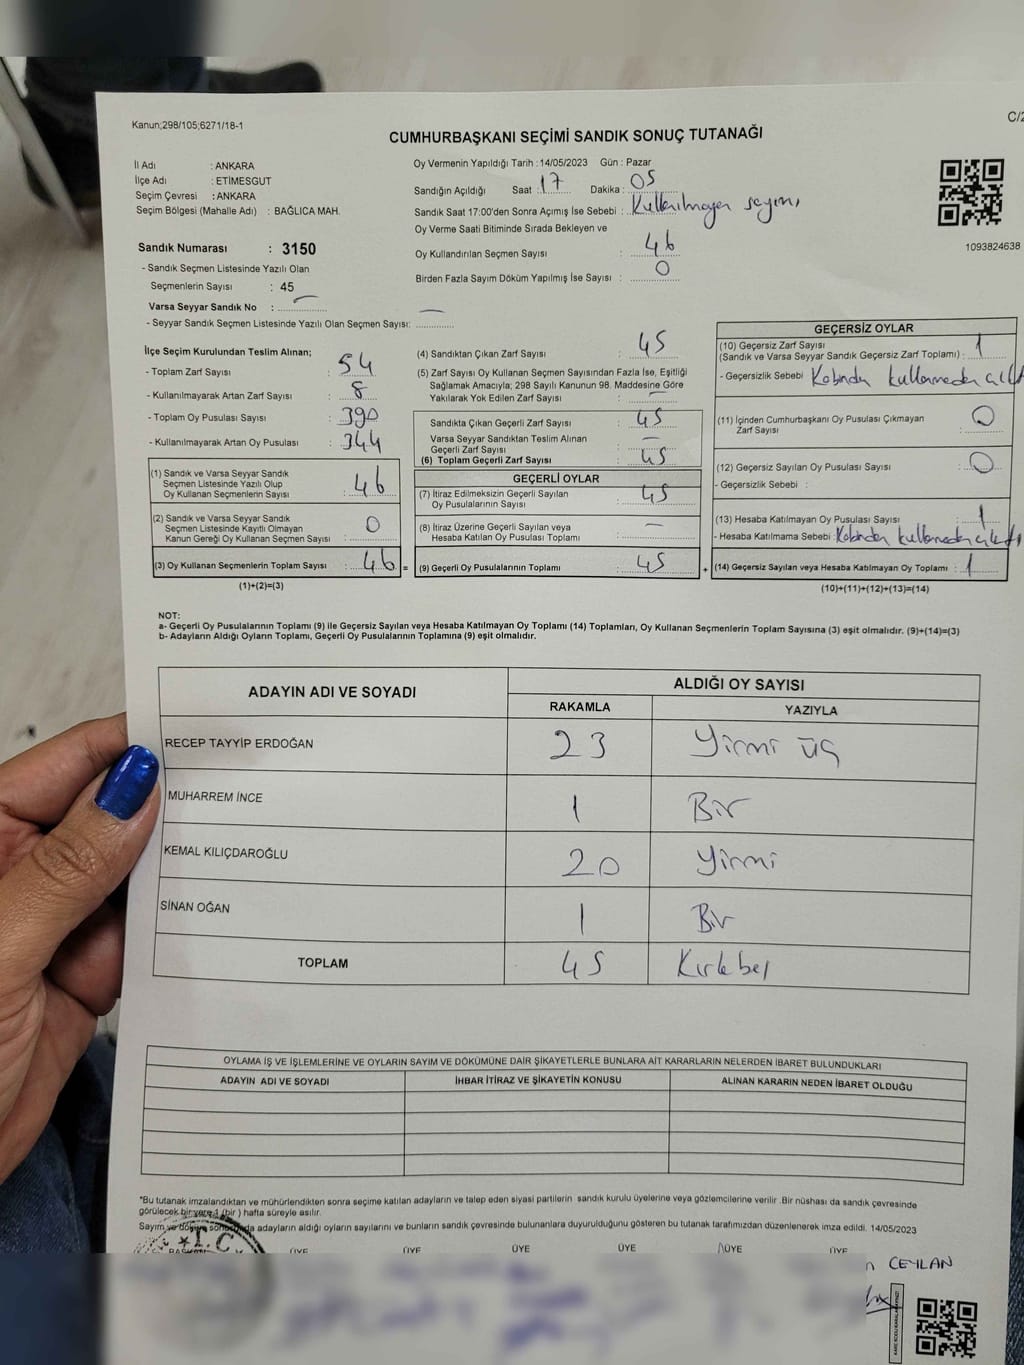 Kanun;298/105;6271/18-1
C/2
CUMHURBAŞKANI SEÇİMİ SANDIK SONUÇ TUTANAĞI
İl Adı : ANKARA
İlçe Adı : ETİMESGUT
Seçim Çevresi : ANKARA
Seçim Bölgesi (Mahalle Adı) : BAĞLICA MAH.
Oy Vermenin Yapıldığı Tarih :14/05/2023 Gün : Pazar
Sandığın Açıldığı Saat : 17 Dakika : 05
Sandık Saat 17:00'den Sonra Açımış İse Sebebi : Kullanılmayan sayımı
Oy Verme Saati Bitiminde Sırada Bekleyen ve
Oy Kullandırılan Seçmen Sayısı : 46
Birden Fazla Sayım Döküm Yapılmış İse Sayısı : 0
1093824638
Sandık Numarası : 3150
- Sandık Seçmen Listesinde Yazılı Olan
Seçmenlerin Sayısı : 45
Varsa Seyyar Sandık No : —
- Seyyar Sandık Seçmen Listesinde Yazılı Olan Seçmen Sayısı: —
İlçe Seçim Kurulundan Teslim Alınan;
- Toplam Zarf Sayısı : 54
- Kullanılmayarak Artan Zarf Sayısı : 8
- Toplam Oy Pusulası Sayısı : 390
- Kullanılmayarak Artan Oy Pusulası : 344
(1) Sandık ve Varsa Seyyar Sandık
Seçmen Listesinde Yazılı Olup
Oy Kullanan Seçmenlerin Sayısı : 46
(2) Sandık ve Varsa Seyyar Sandık
Seçmen Listesinde Kayıtlı Olmayan
Kanun Gereği Oy Kullanan Seçmen Sayısı : 0
(3) Oy Kullanan Seçmenlerin Toplam Sayısı : 46 =
(1)+(2)=(3)
(4) Sandıktan Çıkan Zarf Sayısı : 45
(5) Zarf Sayısı Oy Kullanan Seçmen Sayısından Fazla İse, Eşitliği
Sağlamak Amacıyla; 298 Sayılı Kanunun 98. Maddesine Göre
Yakılarak Yok Edilen Zarf Sayısı : —
Sandıkta Çıkan Geçerli Zarf Sayısı : 45
Varsa Seyyar Sandıktan Teslim Alınan
Geçerli Zarf Sayısı : —
(6) Toplam Geçerli Zarf Sayısı : 45
GEÇERLİ OYLAR
(7) İtiraz Edilmeksizin Geçerli Sayılan
Oy Pusulalarının Sayısı : 45
(8) İtiraz Üzerine Geçerli Sayılan veya
Hesaba Katılan Oy Pusulası Toplamı : —
(9) Geçerli Oy Pusulalarının Toplamı : 45 +
GEÇERSİZ OYLAR
(10) Geçersiz Zarf Sayısı
(Sandık ve Varsa Seyyar Sandık Geçersiz Zarf Toplamı) : 1
- Geçersizlik Sebebi : Kabinden kullanmadan çıktı
(11) İçinden Cumhurbaşkanı Oy Pusulası Çıkmayan
Zarf Sayısı : 0
(12) Geçersiz Sayılan Oy Pusulası Sayısı : 0
- Geçersizlik Sebebi :
(13) Hesaba Katılmayan Oy Pusulası Sayısı : 1
- Hesaba Katılmama Sebebi : Kabinden kullanmadan çıktı
(14) Geçersiz Sayılan veya Hesaba Katılmayan Oy Toplamı : 1
(10)+(11)+(12)+(13)=(14)
NOT:
a- Geçerli Oy Pusulalarının Toplamı (9) ile Geçersiz Sayılan veya Hesaba Katılmayan Oy Toplamı (14) Toplamları, Oy Kullanan Seçmenlerin Toplam Sayısına (3) eşit olmalıdır. (9)+(14)=(3)
b- Adayların Aldığı Oyların Toplamı, Geçerli Oy Pusulalarının Toplamına (9) eşit olmalıdır.
ADAYIN ADI VE SOYADI
ALDIĞI OY SAYISI
RAKAMLA YAZIYLA
RECEP TAYYİP ERDOĞAN 23 Yirmi üç
MUHARREM İNCE 1 Bir
KEMAL KILIÇDAROĞLU 20 Yirmi
SİNAN OĞAN 1 Bir
TOPLAM 45 Kırkbeş
OYLAMA İŞ VE İŞLEMLERİNE VE OYLARIN SAYIM VE DÖKÜMÜNE DAİR ŞİKAYETLERLE BUNLARA AİT KARARLARIN NELERDEN İBARET BULUNDUKLARI
ADAYIN ADI VE SOYADI İHBAR İTİRAZ VE ŞİKAYETİN KONUSU ALINAN KARARIN NEDEN İBARET OLDUĞU
*Bu tutanak imzalandıktan ve mühürlendikten sonra seçime katılan adayların ve talep eden siyasi partilerin sandık kurulu üyelerine veya gözlemcilerine verilir .Bir nüshası da sandık çevresinde
görülecek bir yere 1 (bir ) hafta süreyle asılır.
Sayım ve döküm sonucunda adayların aldığı oyların sayılarını ve bunların sandık çevresinde bulunanlara duyurulduğunu gösteren bu tutanak tarafımızdan düzenlenerek imza edildi. 14/05/2023
T.C
BAŞKAN ÜYE ÜYE ÜYE ÜYE ÜYE ÜYE
CEYLAN